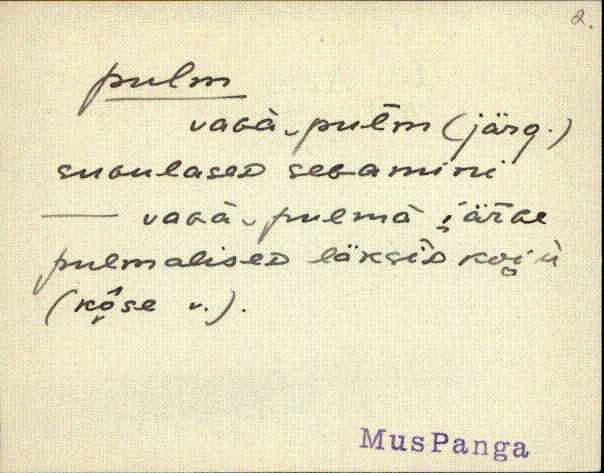 2.
pulm
vaɢà‿pul̄m (järg.)
suɢulaseD seɢamini
—— vaɢà‿pulmà i̯är̄ɢe
pulmaliseD läksìD koi̯ù
(kô̬se v.).
MusPanga